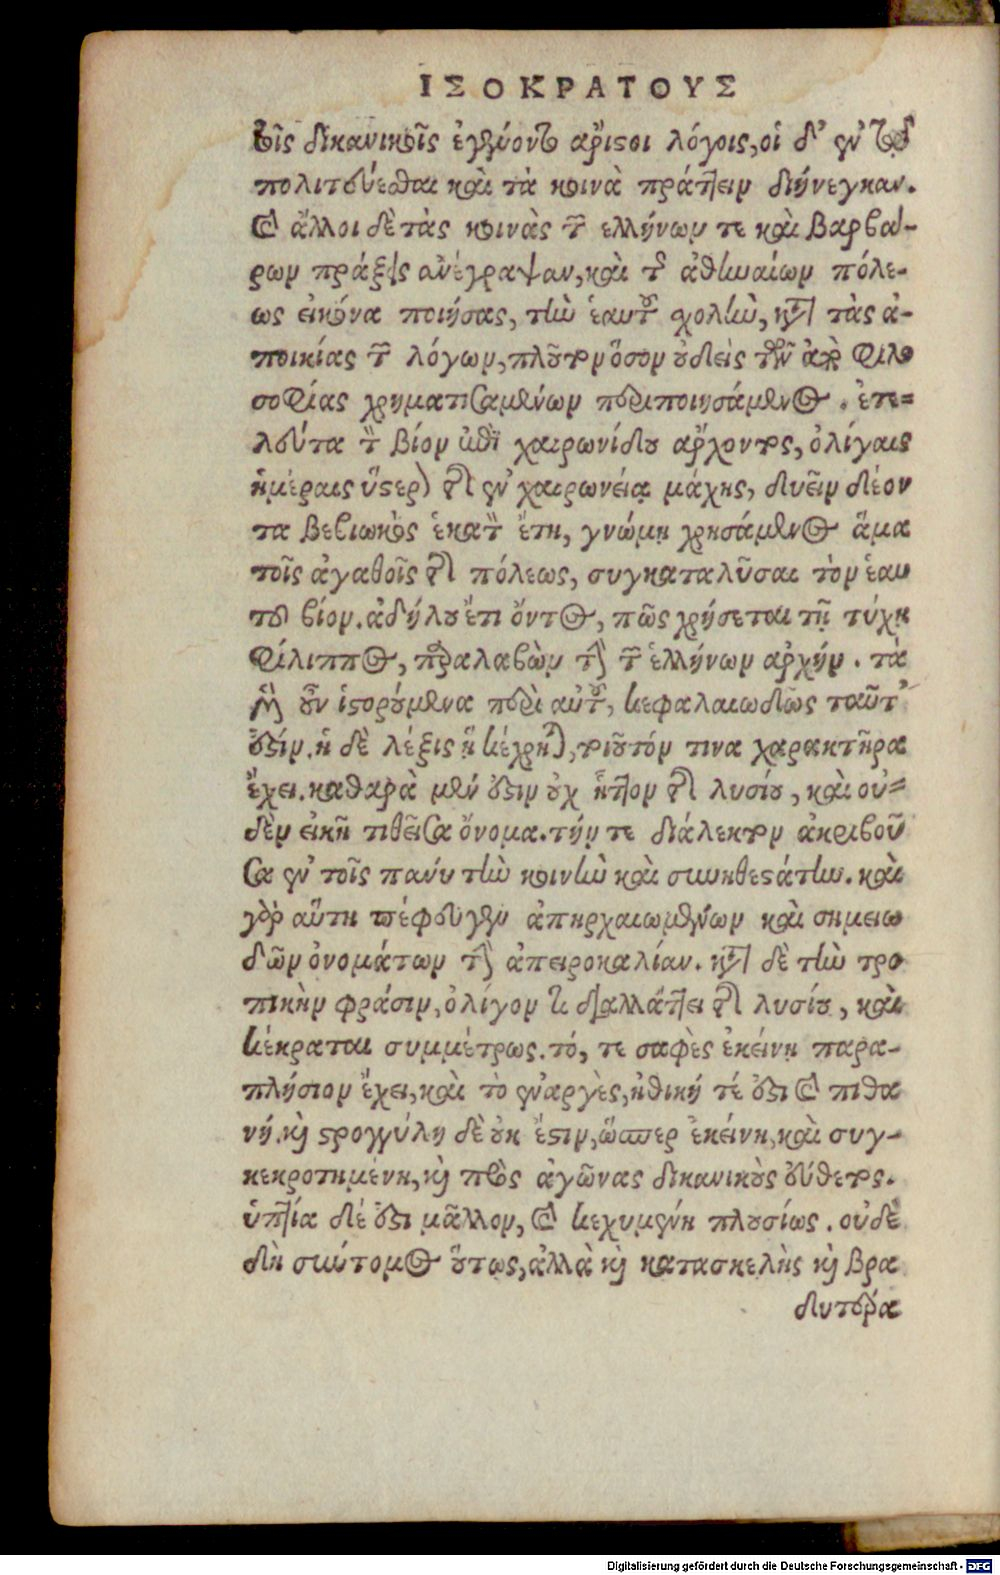 ΙΣΟΚΡΑΤΟΥΣ
τοῖς δικανικοῖς ἐγένοντο ἄριστοι λόγοις, οἱ δ' ἐν τῷ
πολιτεύεσθαι καὶ τὰ κοινὰ πράττειν διήνεγκαν.
καὶ ἄλλοι δὲ τὰς κοινὰς τῶν ἑλλήνων τε καὶ βαρβά-
ρων πράξεις ἀνέγραψαν, καὶ τῆς ἀθηναίων πόλε-
ως εἰκόνα ποιήσας, τὴν ἑαυτοῦ σχολὴν, κατὰ τὰς ἀ-
ποικίας τῶν λόγων, πλοῦτον ὅσον οὐδεὶς τῶν ἀπὸ φιλο
σοφίας χρηματισαμένων περιποιησάμενος. ἐτε-
λεύτα τὸν βίον ἐπὶ χαιρωνίδου ἄρχοντος, ὀλίγαις
ἡμέραις ὕστερον τῆς ἐν χαιρωνείᾳ μάχης, δυεῖν δέον
τα βεβιωκὸς ἑκατὸν ἔτη, γνώμῃ χρησάμενος ἅμα
τοῖς ἀγαθοῖς τῆς πόλεως, συγκαταλῦσαι τὸν ἑαυ
τοῦ βίον. ἀδήλου ἔτι ὄντος, πῶς χρήσεται τῇ τύχῃ
φίλιππος, παραλαβὼν τὴν τῶν ἑλλήνων ἀρχήν. τὰ
μὲν οὖν ἱστορούμενα περὶ αὐτοῦ, κεφαλαιωδῶς ταῦτ'
ἐστίν. ἡ δὲ λέξις ᾗ κέχρηται, τοιοῦτόν τινα χαρακτῆρα
ἔχει. καθαρὰ μέν ἐστιν οὐχ ἧττον τῆς λυσίου, καὶ οὐ-
δὲν εἰκῆ τιθεῖσα ὄνομα. τήν τε διάλεκτον ἀκριβοῦ
σα ἐν τοῖς πάνυ τὴν κοινὴν καὶ συνηθεστάτην. καὶ
γὰρ αὕτη πέφευγεν ἀπηρχαιωμένων καὶ σημειω
δῶν ὀνομάτων τὴν ἀπειροκαλίαν. κατὰ δὲ τὴν τρο
πικὴν φράσιν, ὀλίγον τι διαλλάττει τῆς λυσίου, καὶ
κέκραται συμμέτρως. τό, τε σαφὲς ἐκείνῃ παρα-
πλήσιον ἔχει, καὶ τὸ ἐναργὲς, ἠθική τέ ἐστι καὶ πιθα
νή. καὶ στρογγύλη δὲ οὐκ ἔστιν, ὥσπερ ἐκείνη, καὶ συγ-
κεκροτημένη, καὶ πρὸς ἀγῶνας δικανικοὺς εὔθετος.
ὑπτία δέ ἐστι μᾶλλον, καὶ κεχυμένη πλουσίως. οὐδὲ
δὴ σύντομος οὕτως, ἀλλὰ καὶ κατασκελὴς καὶ βρα
δυτέρα
Digitalisierung gefördert durch die Deutsche Forschungsgemeinschaft - DFG